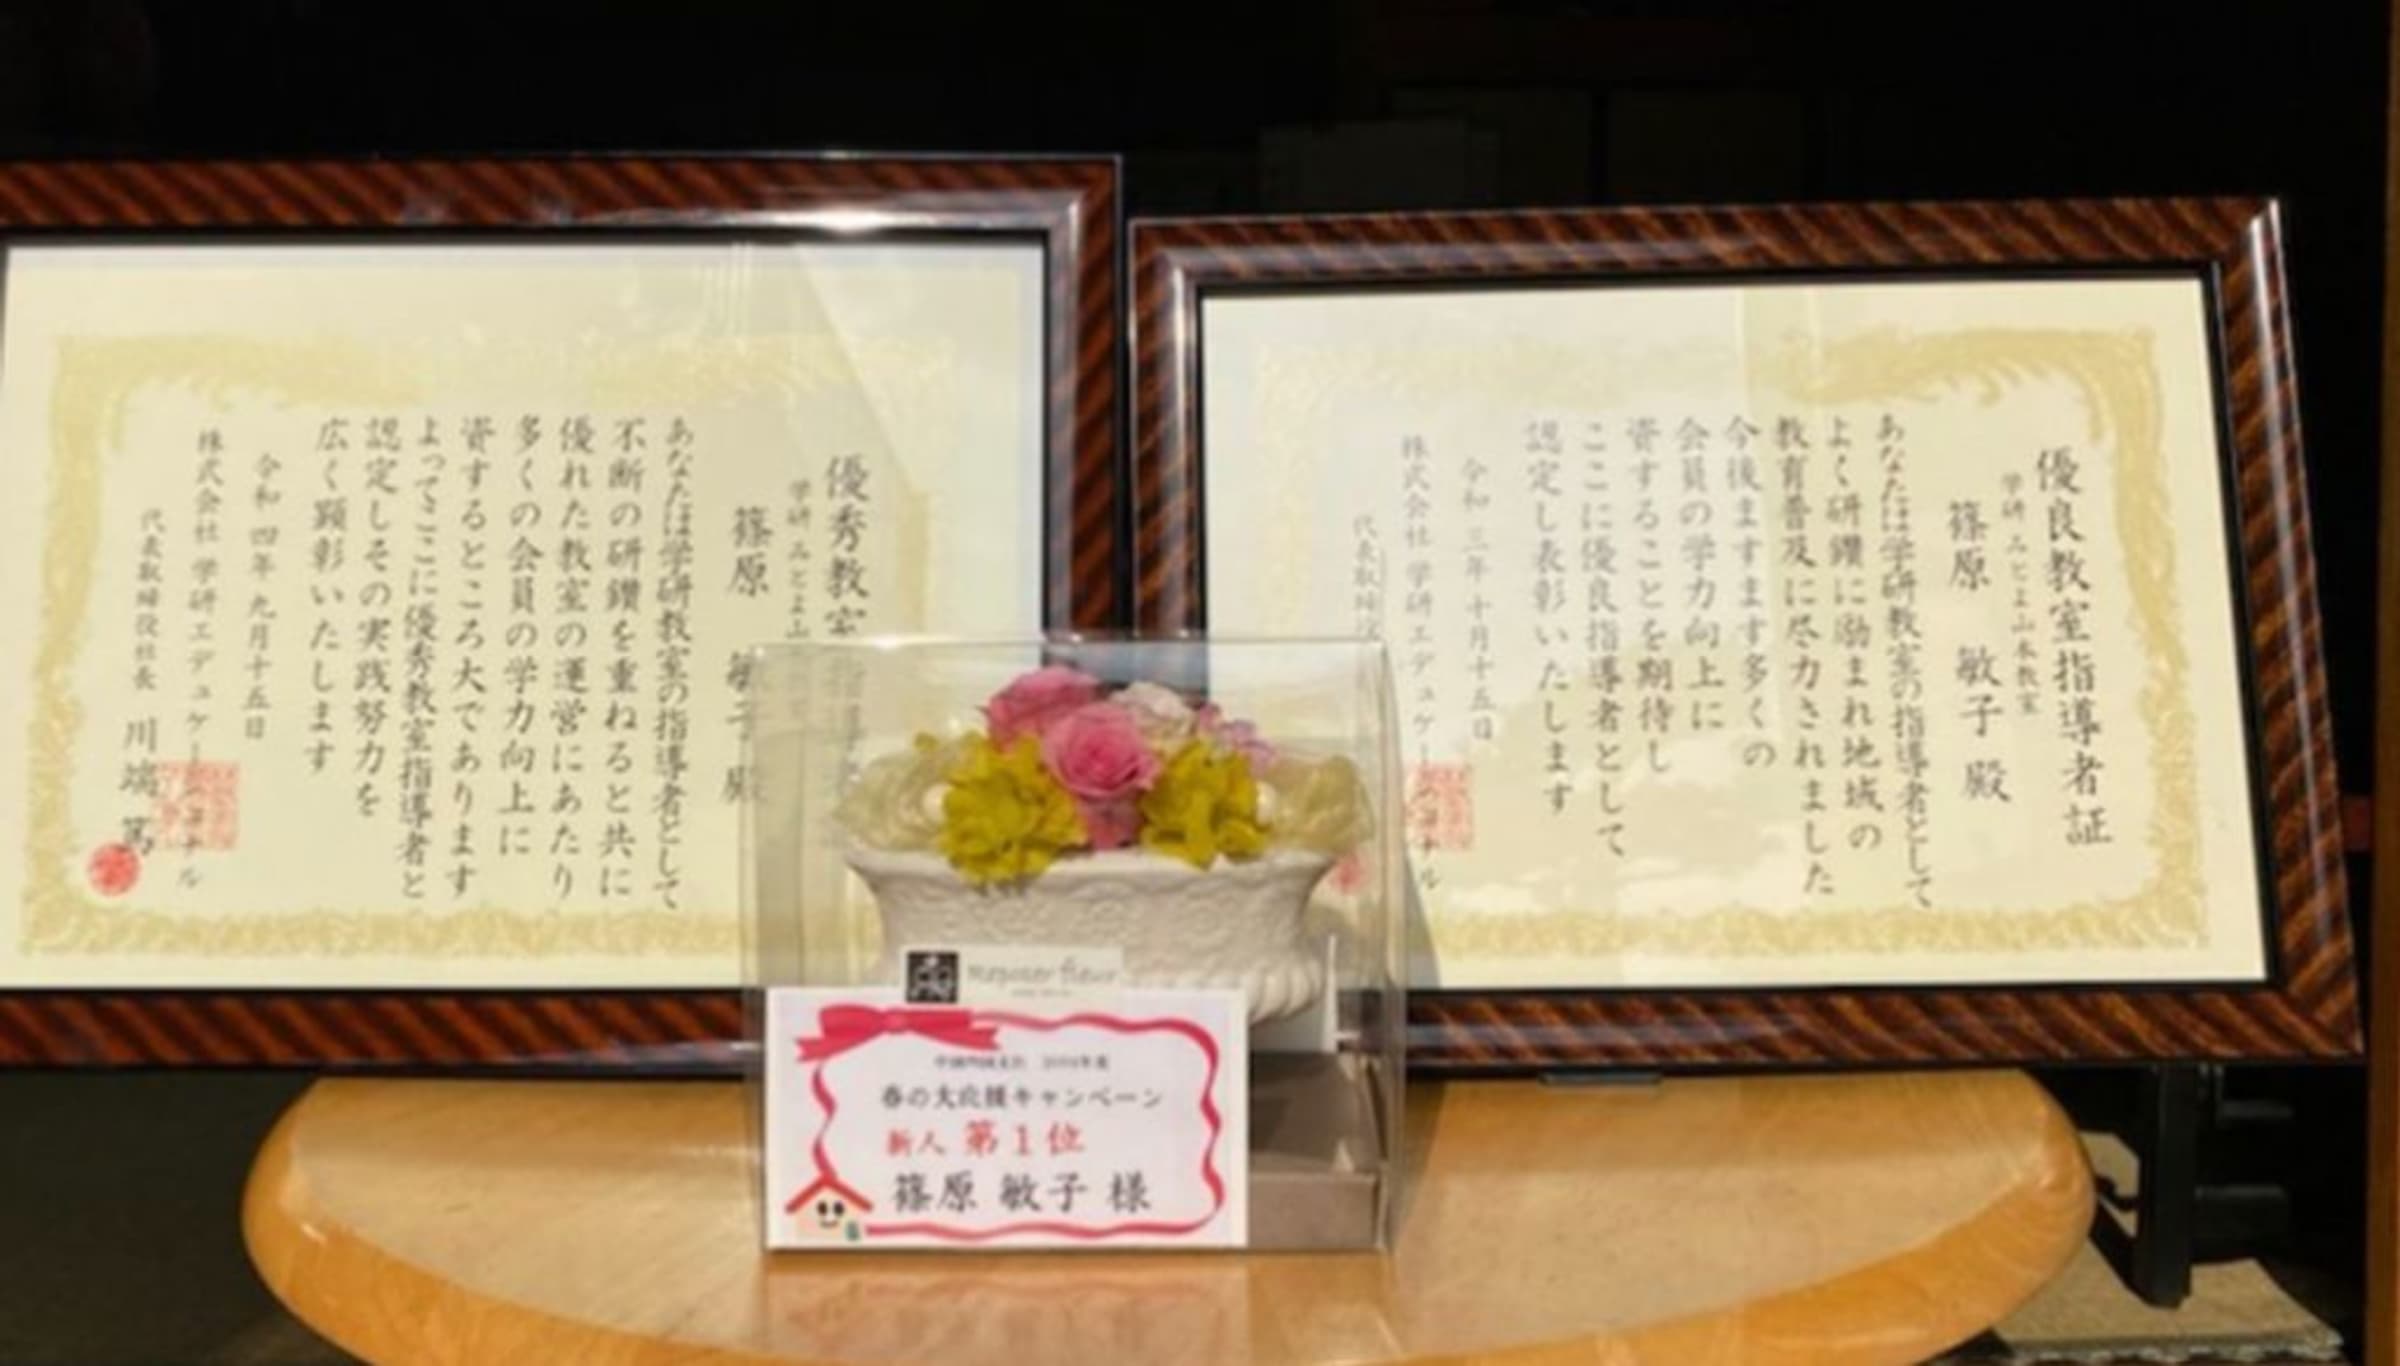 優秀教室指導者
学研 みとよ山
篠原 敏子 殿
あなたは学研教室の指導者として
不断の研鑽を重ねると共に
優れた教室の運営にあたり
多くの会員の学力向上に
資するところ大であります
よってここに優秀教室指導者と
認定しその実践努力を
広く顕彰いたします
令和四年九月十五日
株式会社 学研エデュケーショナル
代表取締役社長 川端 篤
優良教室指導者証
学研 みとよ山本教室
篠原 敏子 殿
あなたは学研教室の指導者として
よく研鑽に励まれ地域の
教育普及に尽力されました
今後ますます多くの
会員の学力向上に
資することを期待し
ここに優良指導者として
認定し表彰いたします
令和三年十月十五日
株式会社 学研エデュケーショナル
代表取締役
春の大応援キャンペーン
新人 第1位
篠原 敏子 様